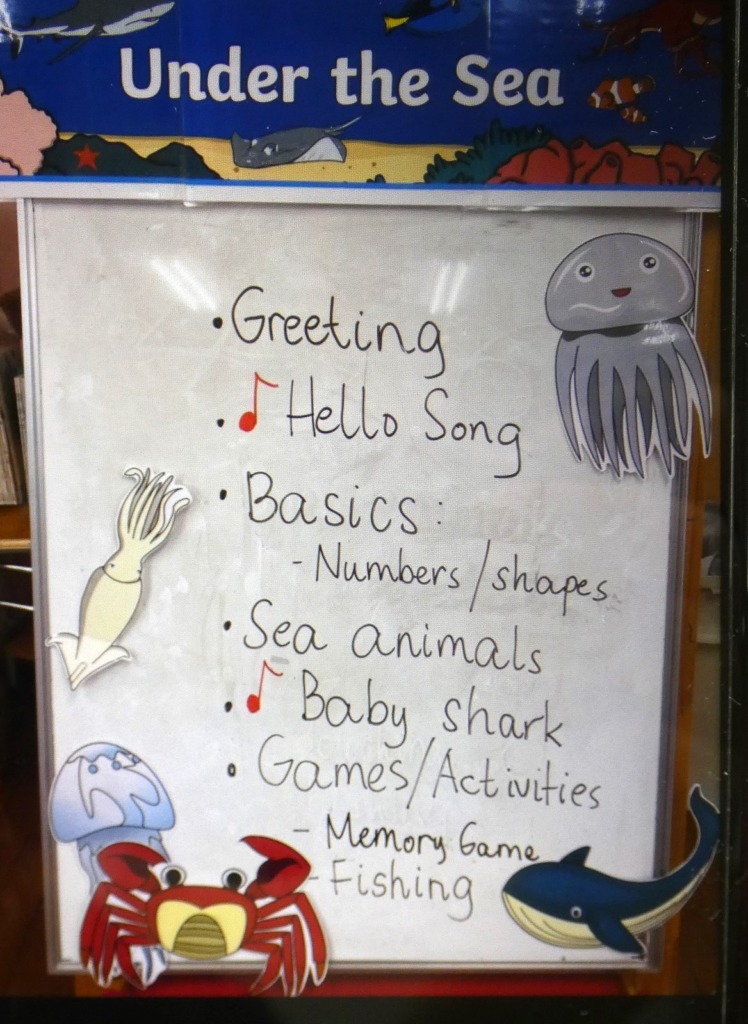 Under the Sea
• Greeting
• ♪ Hello Song
• Basics:
- Numbers/shapes
• Sea animals
• ♪ Baby shark
• Games/Activities
- Memory Game
- Fishing